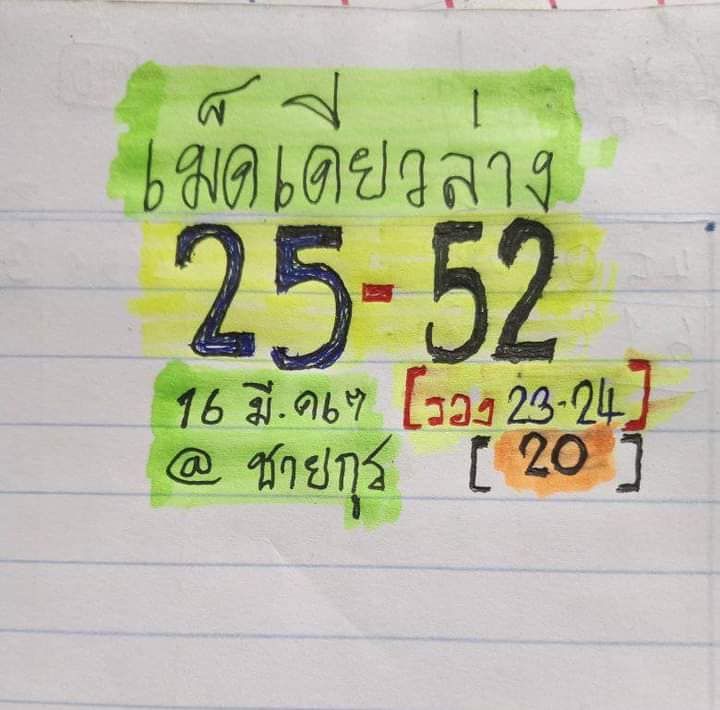 เม็ดเดียวล่าง
25-52
16 มี.ค67 [รอง 23-24]
@ ชายกุร [20]